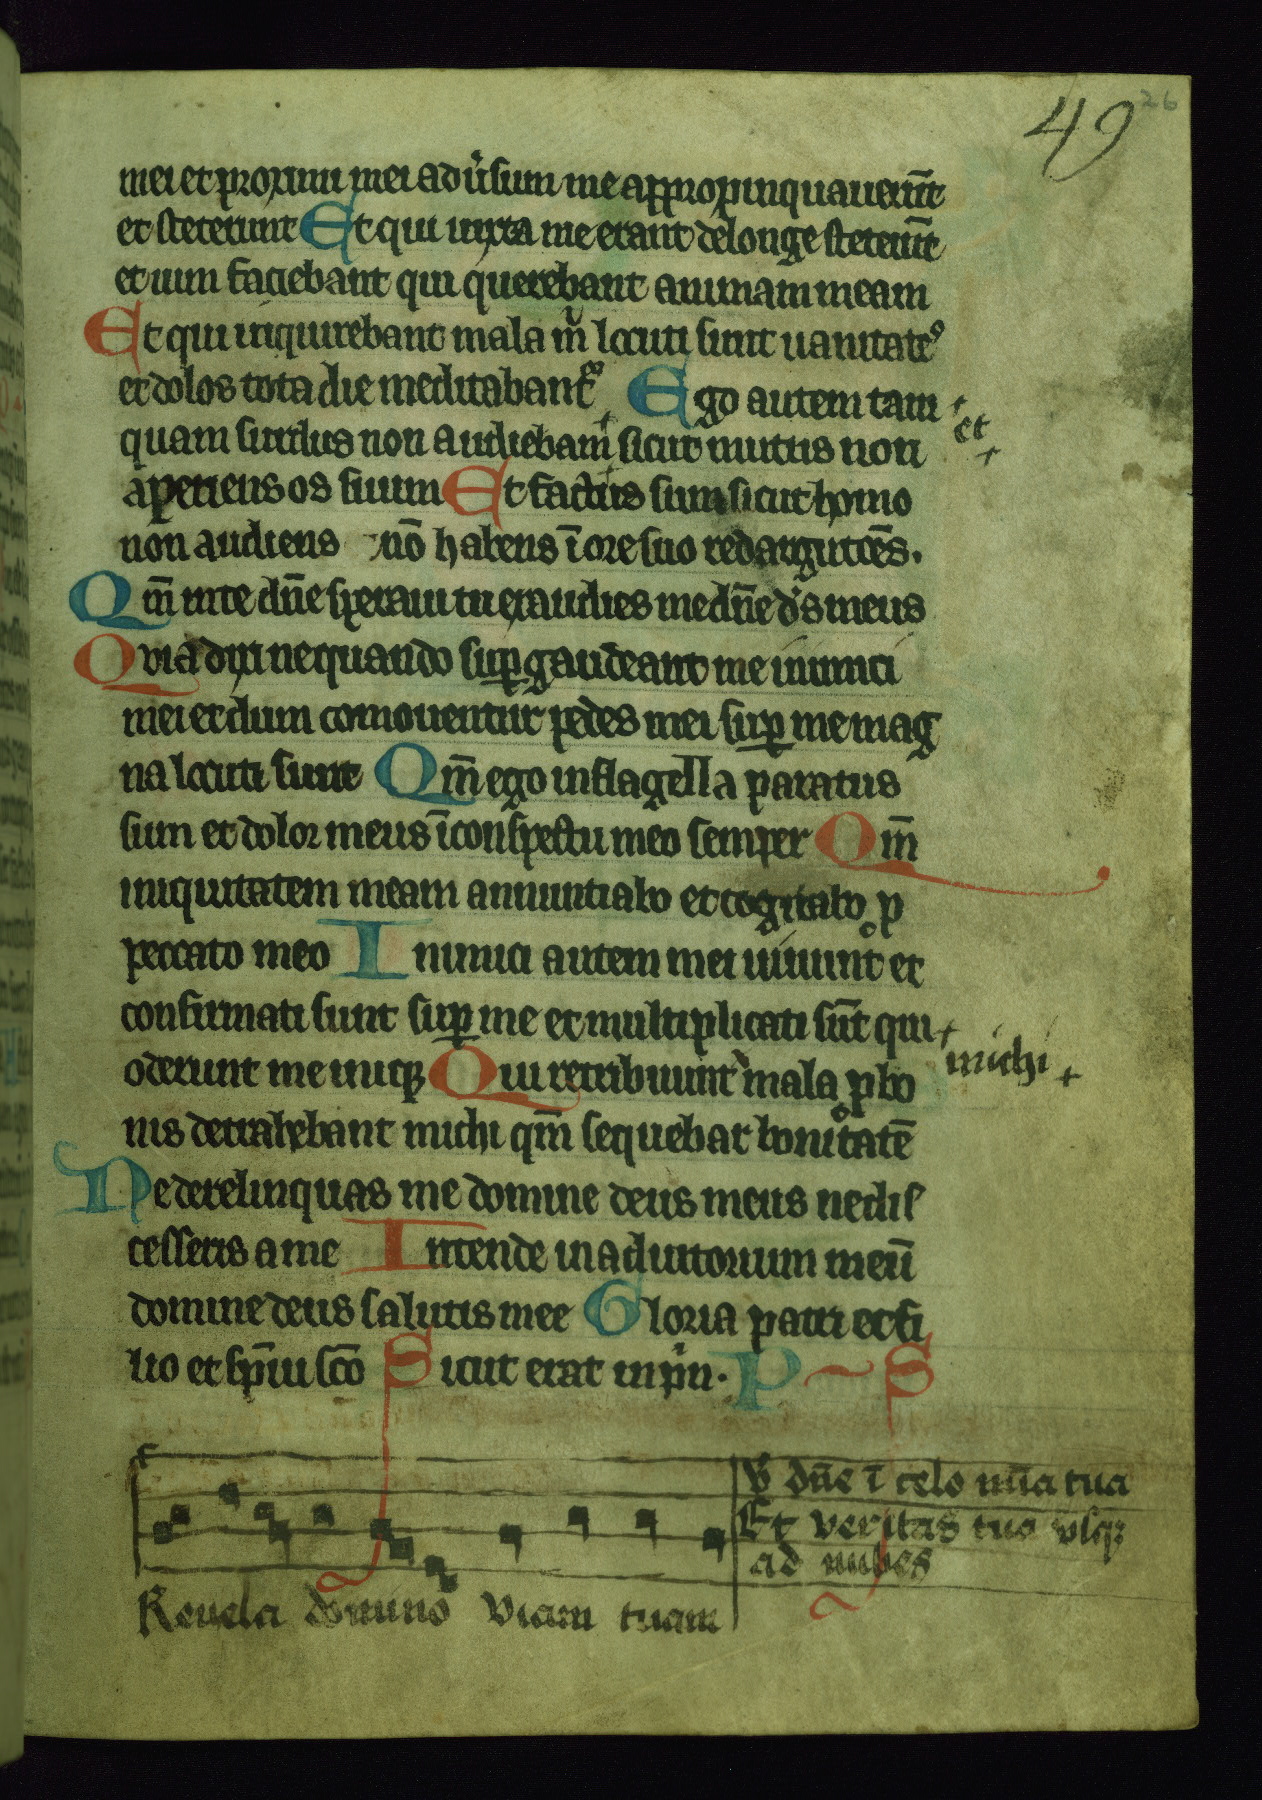 49 26
mei et proximi mei adu'sum me appropinquauerūt
et steterunt Et qui iuxta me erant delonge steterūt
et uim faciebant qui querebant animam meam
Et qui inquirebant mala m̄ locuti sunt uanitates
et dolos tota die meditabant Ego autem tam
et
quam surdus non audiebam sicut mutus non
aperiens os suum Et factus sum sicut homo
non audiens nō habens ī ore suo redargutōēs.
Qm̄ inte dn̄e speraui tu exaudies me dn̄e d's meus
Quia dixi nequando sup gaudeant me inimici
mei et dum comouentur pedes mei sup me mag
na locuti sunt Qm̄ ego in flagella paratus
sum et dolor meus ī conspectu meo semper Qm̄
iniquitatem meam annuntiabo et cogitabo p
peccato meo Inimici autem mei uiuunt et
confirmati sunt sup me et multiplicati sūt qui
oderunt me iniq; Qui retribuunt mala p bo
michi
nis detrahebant michi qm̄ sequebar bonitatē
Ne derelinquas me domine deus meus ne dis
cesseris a me Intende in adiutorium meū
domine deus salutis mee Gloria patri et fi
lio et sp̄iui sc̄o Sicut erat in p'n. P S
V dn̄e ī celo mīa tua
Et veritas tua vsq;
ad nubes
Reuela domino viam tuam